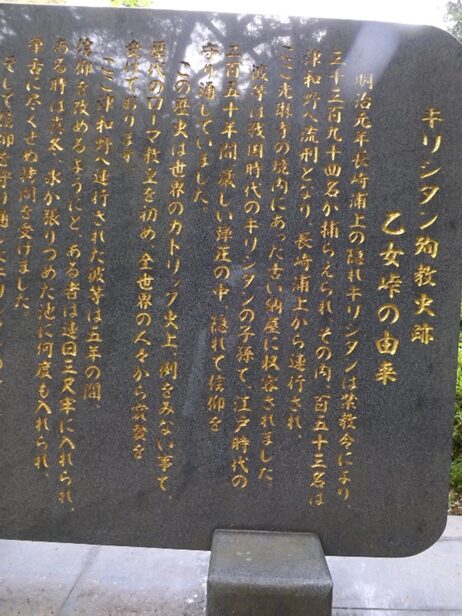 キリシタン殉教史跡
乙女峠の由来
明治元年長崎浦上の隠れキリシタンは禁教令により、
三千三百九十四名が捕らえられ、その内、百五十三名は
津和野へ流刑となり、長崎浦上から連行され、
ここ光琳寺の境内にあった古い納屋に収容されました。
彼等は戦国時代のキリシタンの子孫で、江戸時代の
二百五十年間、厳しい弾圧の中、隠れて信仰を
守り通していました。
この歴史は世界のカトリック史上、例をみない事で、
歴代のローマ教皇を初め、全世界の人々から賞賛を
受けております
ここ津和野へ連行された彼等は五年の間、
信仰を改めるようにと、ある者は連日三尺牢に入れられ、
ある時は真冬、氷が張りつめた池に何度も入れられ、
筆舌に尽くせぬ拷問を受けました。
そして信仰を守り通したキリシタン